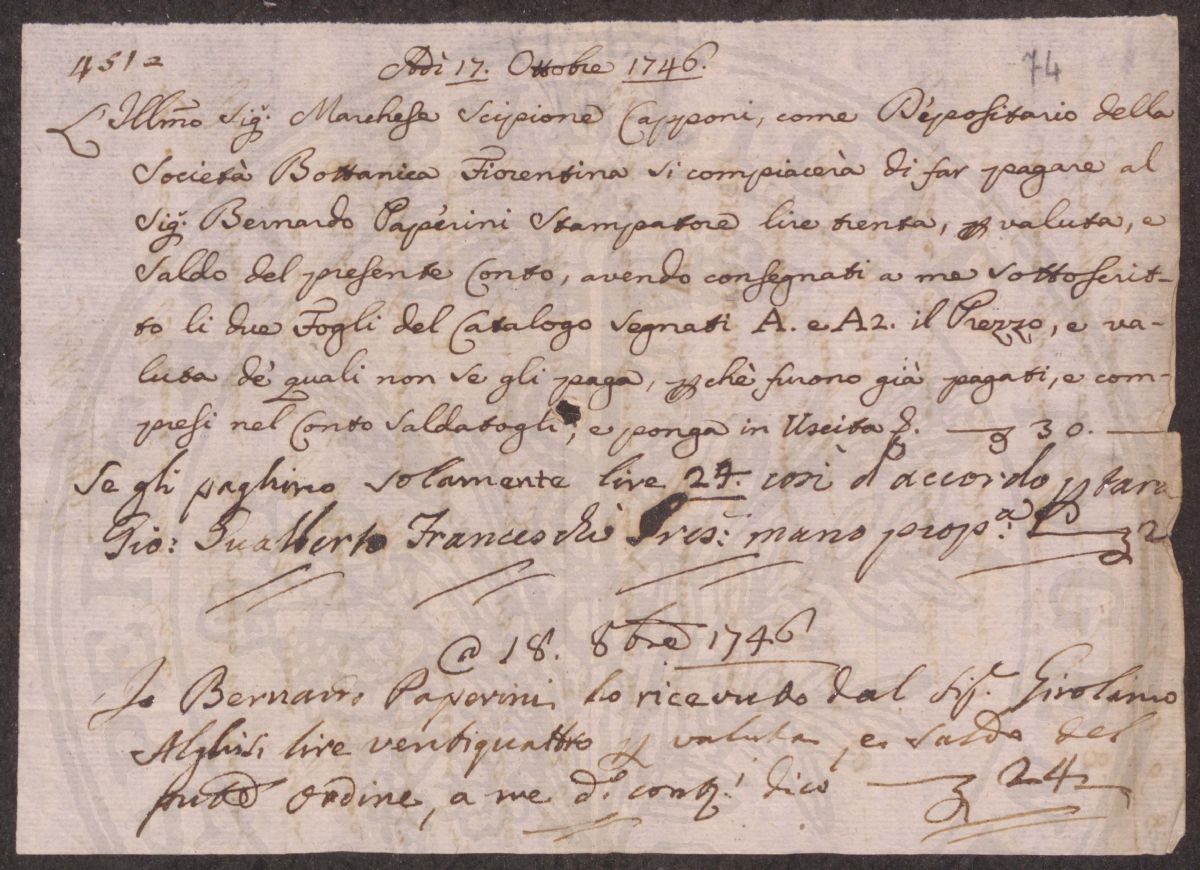 4512
74
Adì 17. Ottobre 1746.
L'Illmo Sigr. Marchese Scipione Capponi, come Depositario della
Società Bottanica Fiorentina si compiacerà di far pagare al
Sigr. Bernardo Paperini Stampatore lire trenta, p valuta, e
Saldo del presente Conto, avendo consegnati a me sottoscrit-
to li due Fogli del Catalogo segnati A. e A2. il Prezzo, e va-
luta de' quali non se gli paga, pchè furono già pagati, e com-
presi nel Conto saldatogli, e ponga in Uscita 30.
Se gli paghino solamente lire 24. così d'accordo p tara
Gio: Gualberto Franceschi mano propa.
@ 18. 8bre 1746
Io Bernardo Paperini ho ricevuto dal Sigr. Girolimo
Alghisi lire ventiquattro p valuta, e saldo del
ordine, a me do. dico 24